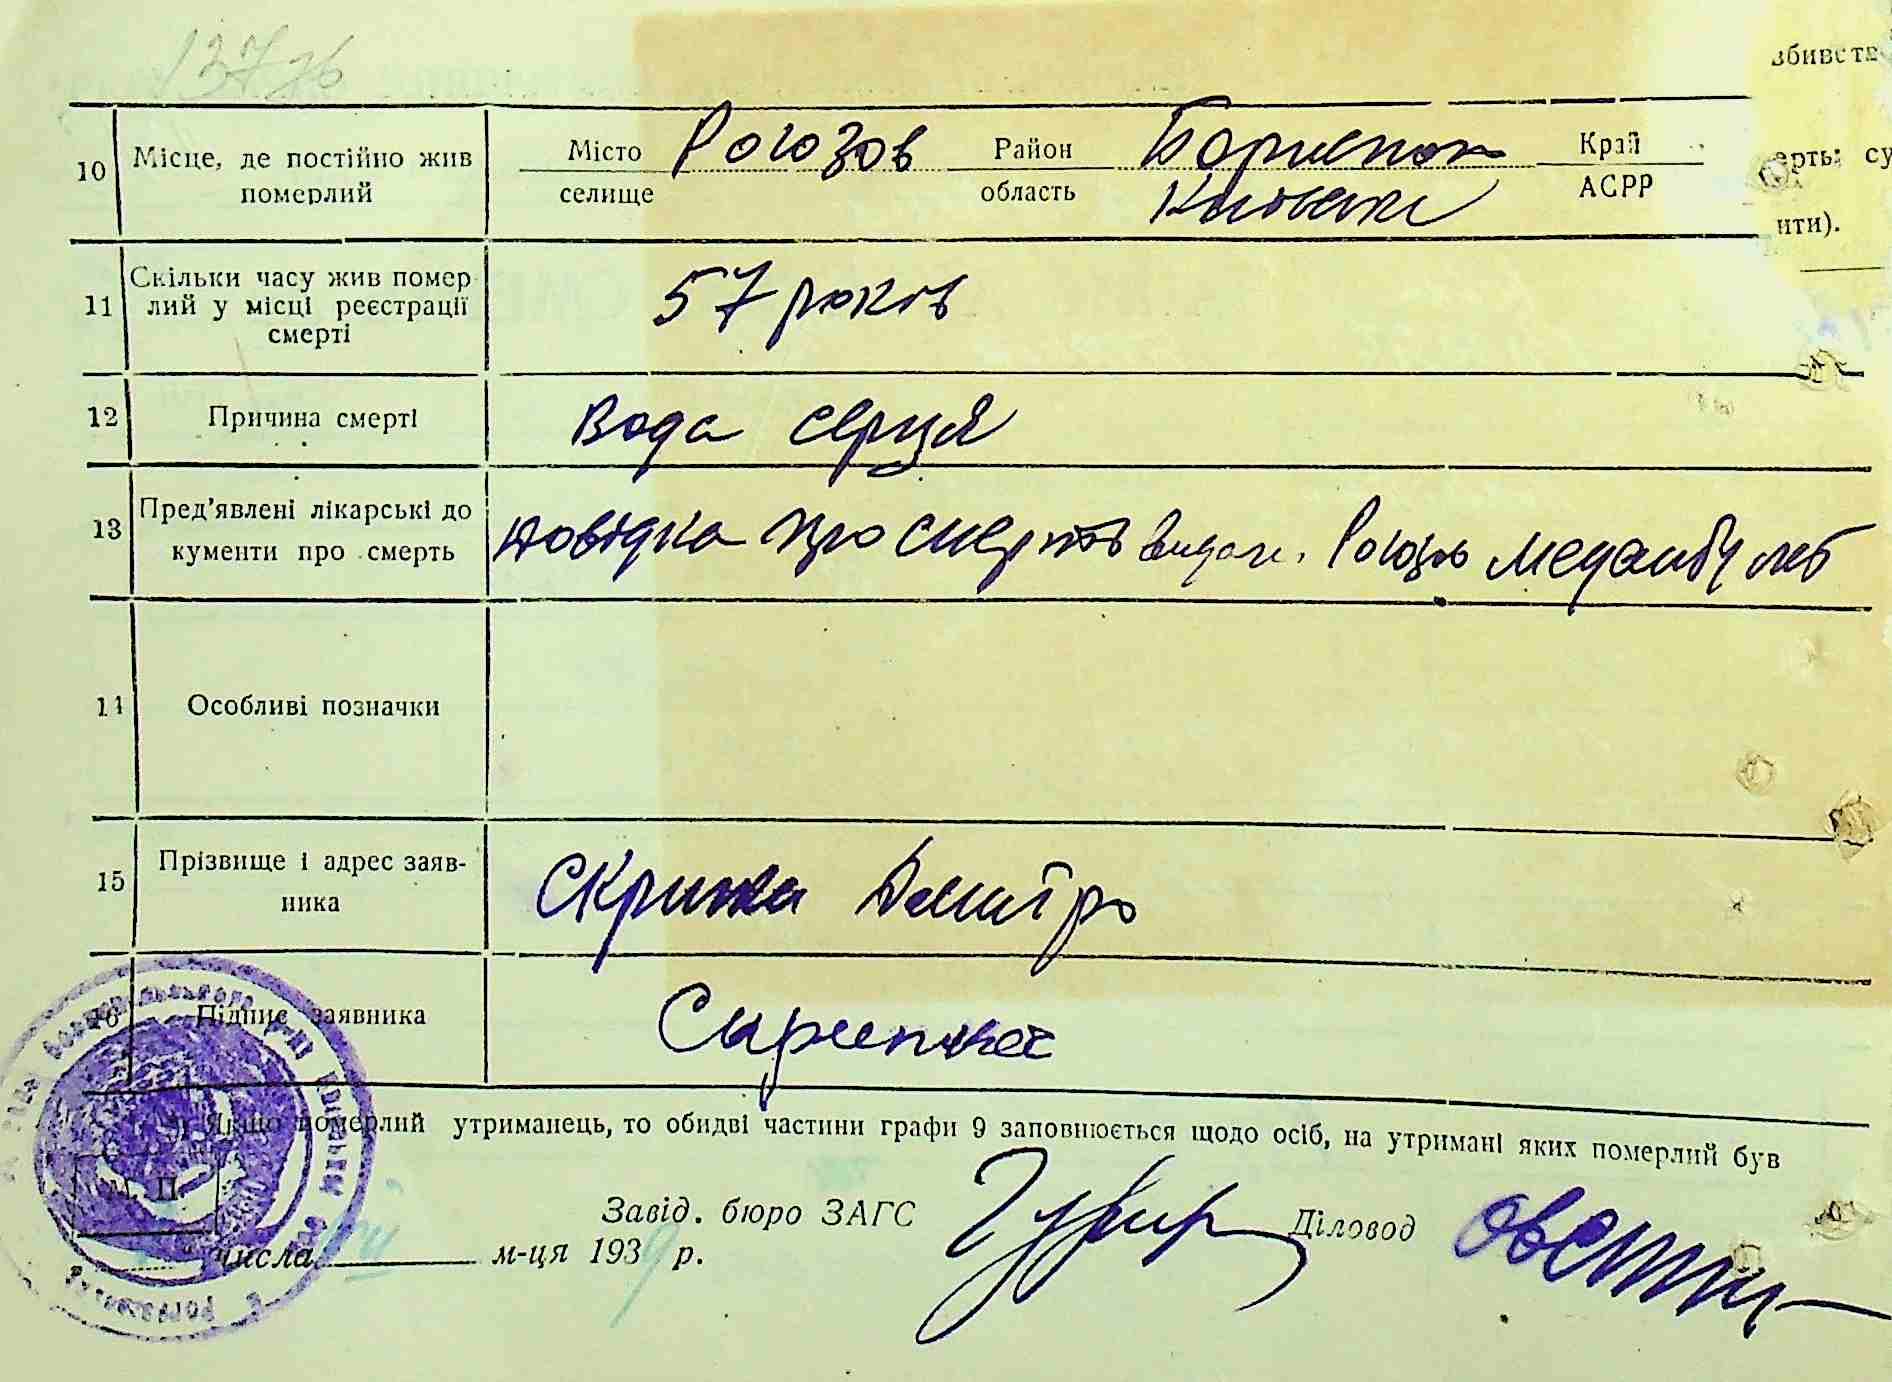 137
збивств
10 Місце, де постійно жив померлий
Місто селище Рогозов Район область Бориспол Київськ Край АСРР
ерть: су
нти).
11 Скільки часу жив померлий у місці реєстрації смерті
57 років
12 Причина смерті
Вода серця
13 Пред’явлені лікарські документи про смерть
Довідка про смерть видан. Рогозів медамбулат
14 Особливі позначки
15 Прізвище і адрес заявника
Скрипка Дмитро
16 Підпис заявника
Якщо померлий утриманець, то обидві частини графи 9 заповнюється щодо осіб, на утримані яких померлий був
М. П.
Завід. бюро ЗАГС Діловод
числа м-ця 1939 р.